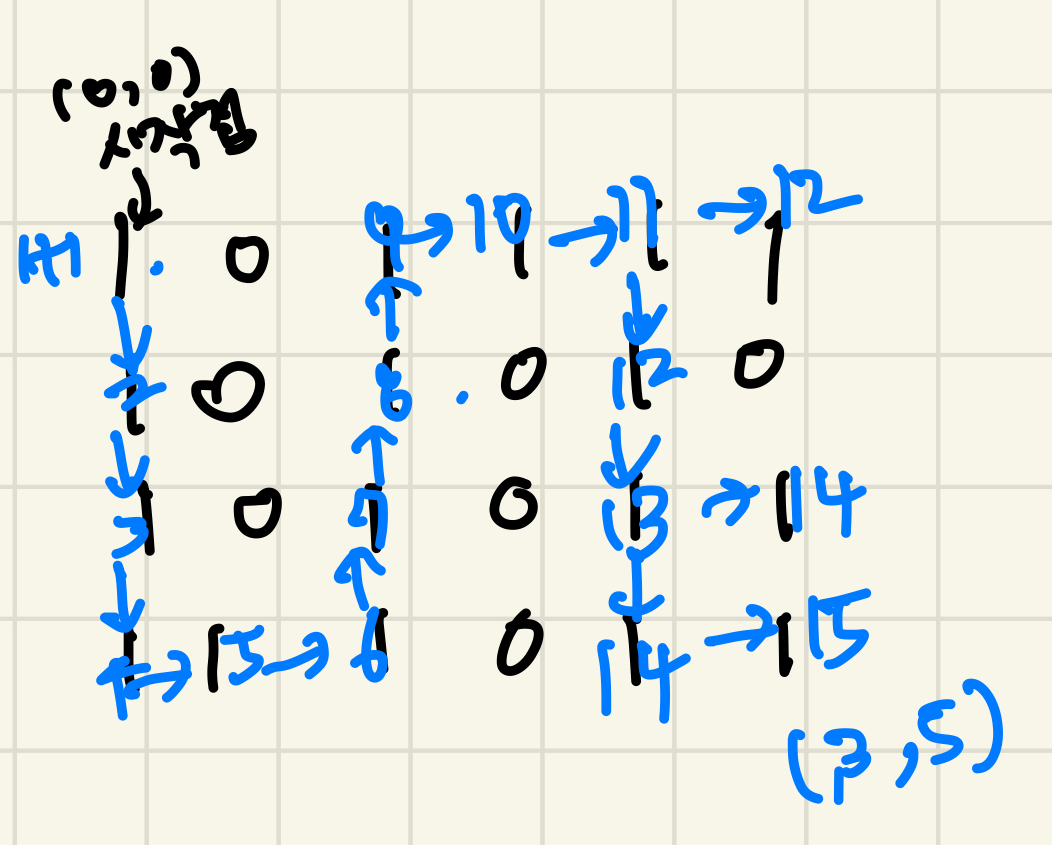 (0,0)
시작점
↓
1 0 1 9 → 1 10 → 1 11 → 1 12
1 2 0 1 8 0 1 12 0
1 3 0 1 7 0 1 13 → 1 14
1 4 → 1 5 → 1 6 0 1 14 → 1 15
(3,5)